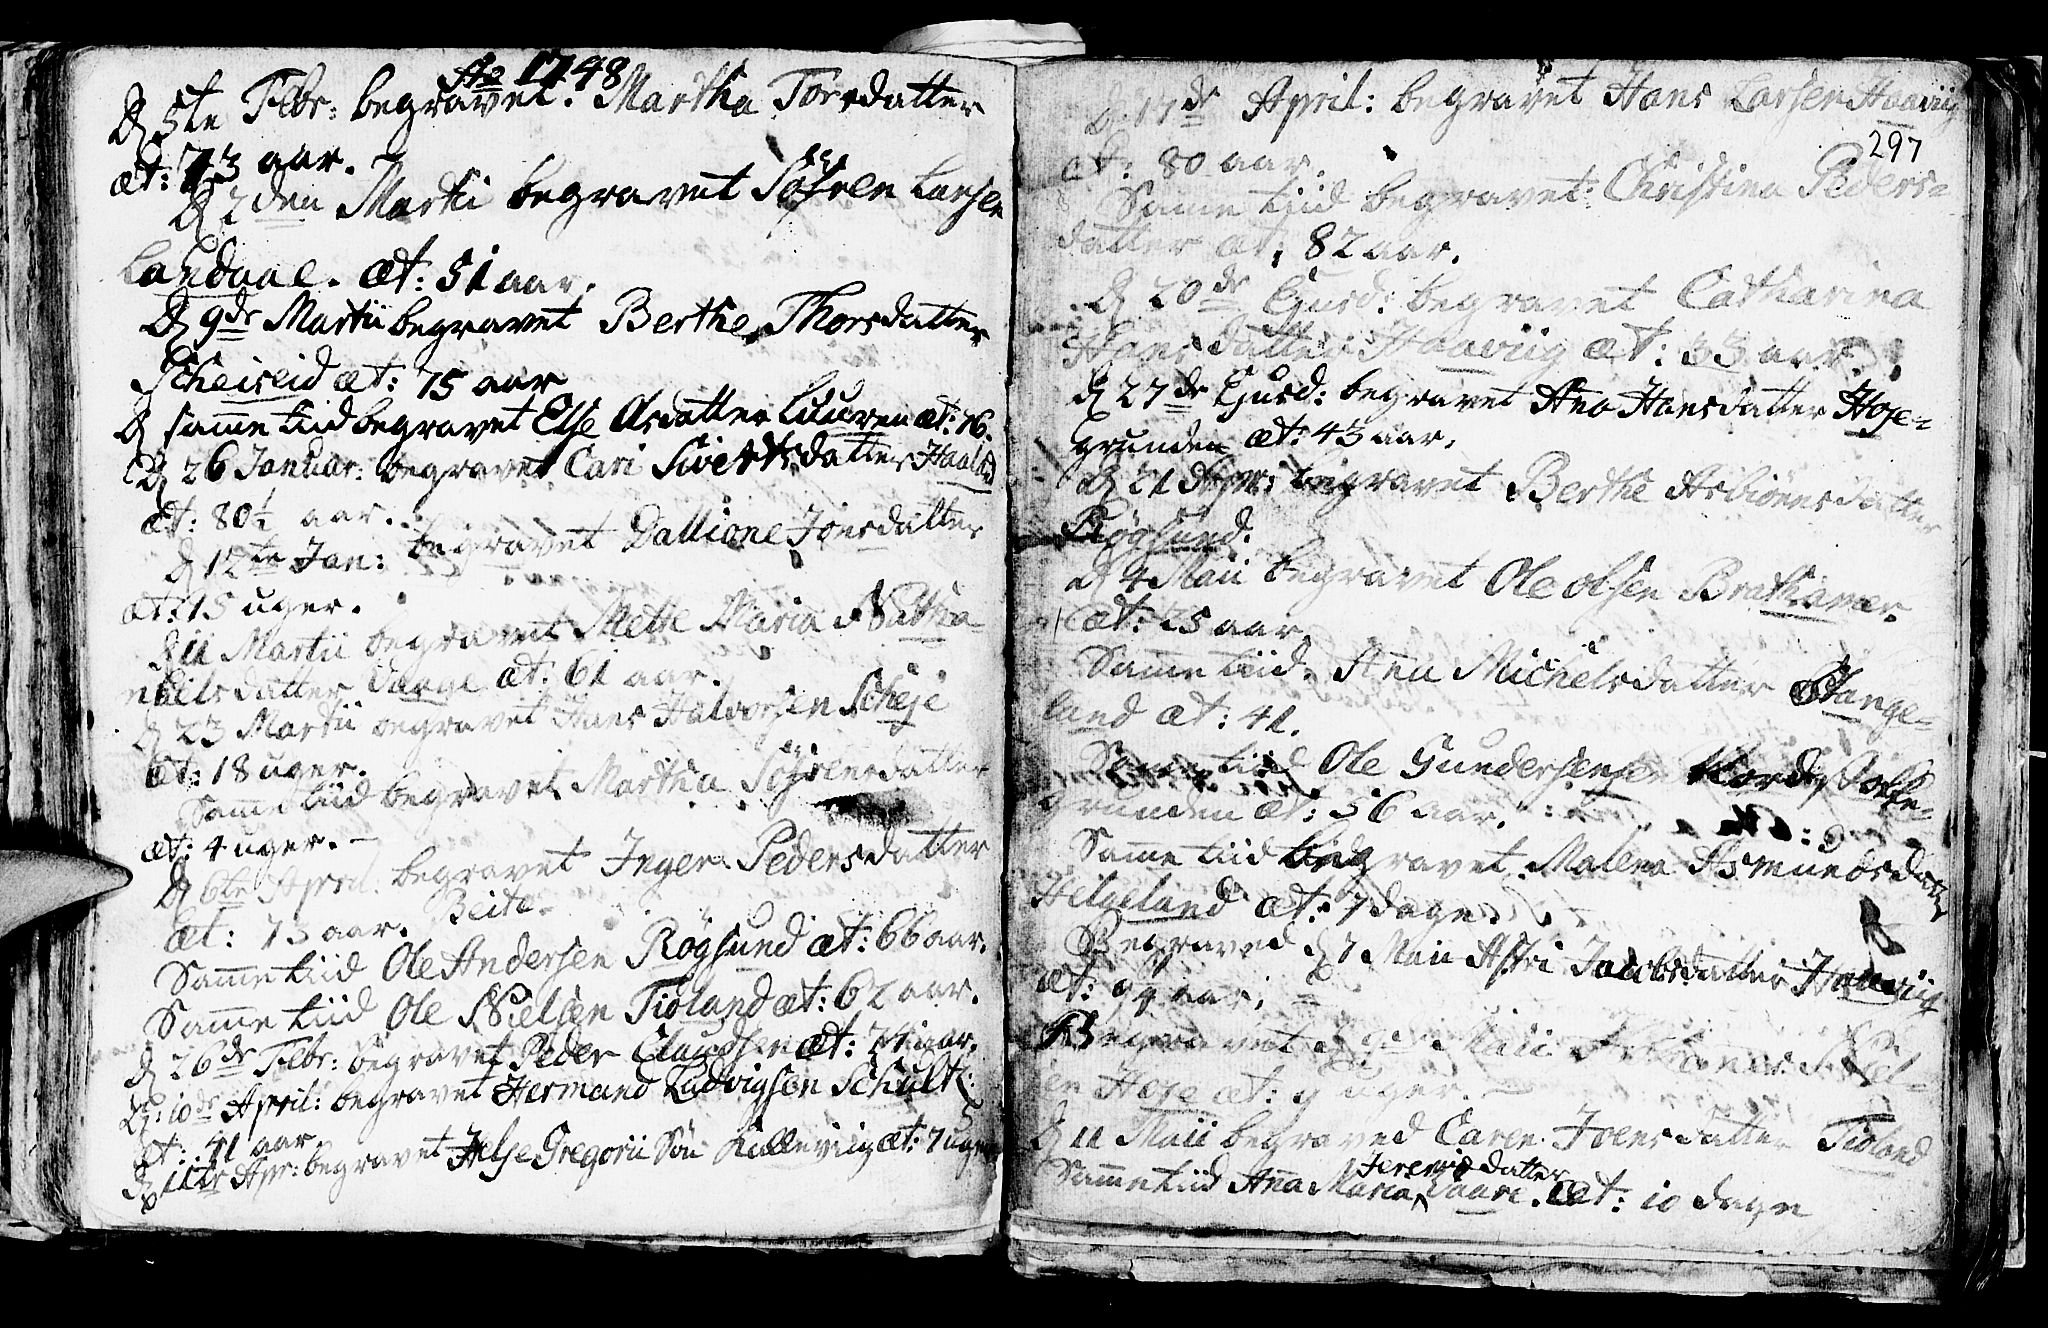 Ao 1748
D 5te Febr: begravet. Martha Torsdatter
æt: 73 aar.
D 2den Martii begravet Söfren Larsen
Landaae. æt: 51 aar.
D 9de Martii begravet Berthe Thorsdatter
Scheiseid æt: 75 aar
D samme tiid begravet Else Olsdatter Luuren æt: 76.
D 26 Januar: begravet Cari Sivertsdatter
æt: 80½ aar.
D 12te Jan: begravet Jonsdatter
æt: 15 uger.
D 11 Martii begravet Mette Maria Natha-
nielsdatter Vaage æt: 61 aar.
D 23 Martii begravet Hans Halvorsen Scheje
æt: 18 uger.
Samme tiid begravet Martha Söfrensdatter
æt: 4 uger. -
D 6te April: begravet Inger Pedersdatter
æt: 73 aar. Beite
Samme tiid Ole Andersen Rögsund æt: 66 aar.
Samme tiid Ole Nielsen Tioland æt: 62 aar.
D 26de Febr: begravet Peder Claudsen æt: 74 aar.
D: 10de April: begravet Hermand Ludvigsen Schult:
æt: 41 aar.
D 11te Apr: begravet Helje Gregorii Sön Kulleviig æt: 7 uger
D. 17de April: begravet Hans Larsen Haaviig
297
æt: 80 aar.
Samme tiid begravet: Christina Peders-
datter æt: 82 aar.
D 20de Ejusd: begravet Catharina
Hansdatter Haaviig æt: 33 aar.
D 27de Ejusd: begravet Ana Hansdatter Høje-
grunden æt: 43 aar.
D 21 begravet Berthe Asbiörnsdatter
Rögsund.
D 4 Maii begravet Ole Olsen Brathamer.
æt: 25 aar.
Samme tiid. Anna Michelsdatter Stange-
land æt: 41.
Samme tiid Ole Gundersen
grunden æt: 56 aar.
Samme tiid begravet Malena Asmundsdatter
Helgeland æt: 7 dage.
Begraved D 7 Maii Astri Jacobsdatter Haaviig
æt: 94 aar. =
Begravet Maii
Høje æt: 9 uger. -
D 11 Maii begraved Caren Joensdatter Tioland
Jeremiædatter
Samme tiid Anna Maria Vaare. æt: 10 dage